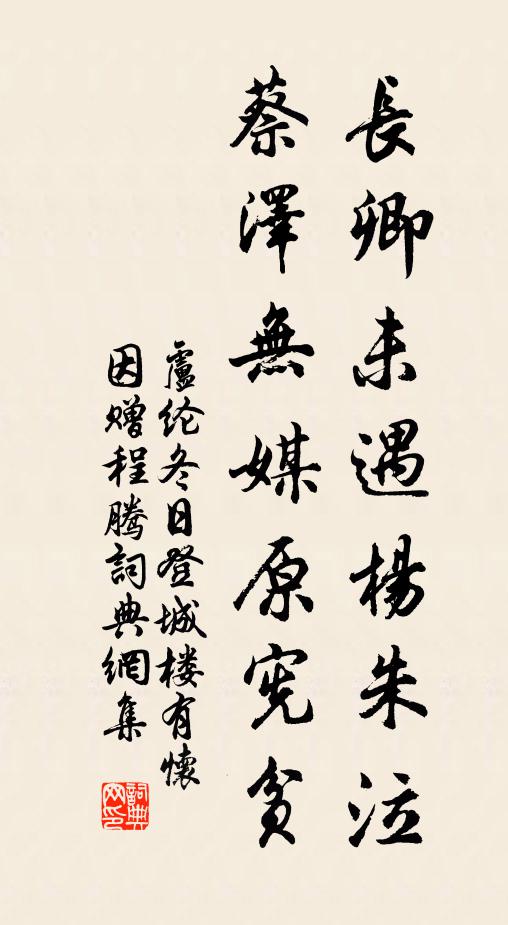 長卿未遇楊朱泣
蔡澤無媒原宪貧
盧纶冬日登城楼有懷
因赠程腾詞典網集
詞典网印